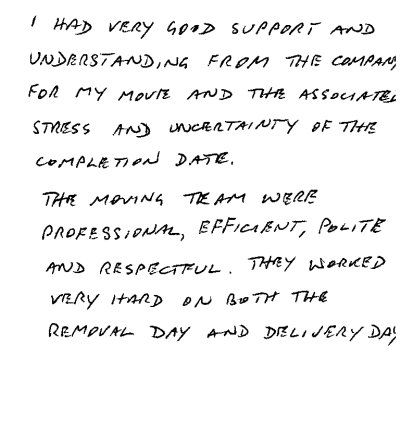 I HAD VERY GOOD SUPPORT AND
UNDERSTANDING FROM THE COMPANY
FOR MY MOVE AND THE ASSOCIATED
STRESS AND UNCERTAINTY OF THE
COMPLETION DATE.
THE MOVING TEAM WERE
PROFESSIONAL, EFFICIENT, POLITE
AND RESPECTFUL. THEY WORKED
VERY HARD ON BOTH THE
REMOVAL DAY AND DELIVERY DAY